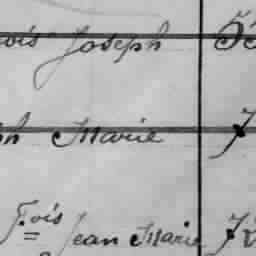 ois Joseph
ph Marie
F.ois Jean Marie